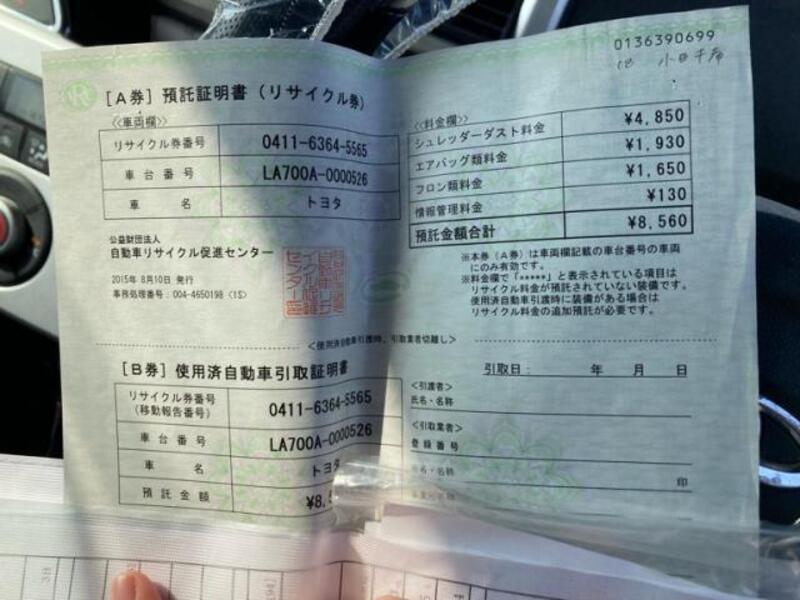 0136390699
[A券] 預託証明書 (リサイクル券)
≪車両欄≫
リサイクル券番号 0411-6364-5565
車台番号 LA700A-0000526
車名 トヨタ
≪料金欄≫
シュレッダーダスト料金 ¥4,850
エアバッグ類料金 ¥1,930
フロン類料金 ¥1,650
情報管理料金 ¥130
預託金額合計 ¥8,560
公益財団法人
自動車リサイクル促進センター
2015年 8月10日 発行
事務処理番号:004-4650198 <1S>
※本券(A券)は車両欄記載の車台番号の車両
にのみ有効です。
※料金欄で「*****」と表示されている項目は
リサイクル料金が預託されていない装備です。
使用済自動車引渡時に装備がある場合は
リサイクル料金の追加預託が必要です。
<使用済自動車引渡時、引取業者切離し>
[B券] 使用済自動車引取証明書
リサイクル券番号
(移動報告番号) 0411-6364-5565
車台番号 LA700A-0000526
車名 トヨタ
預託金額 ¥8,5
引取日: 年 月 日
<引渡者>
氏名・名称
<引取業者>
登録番号
氏名・名称 印